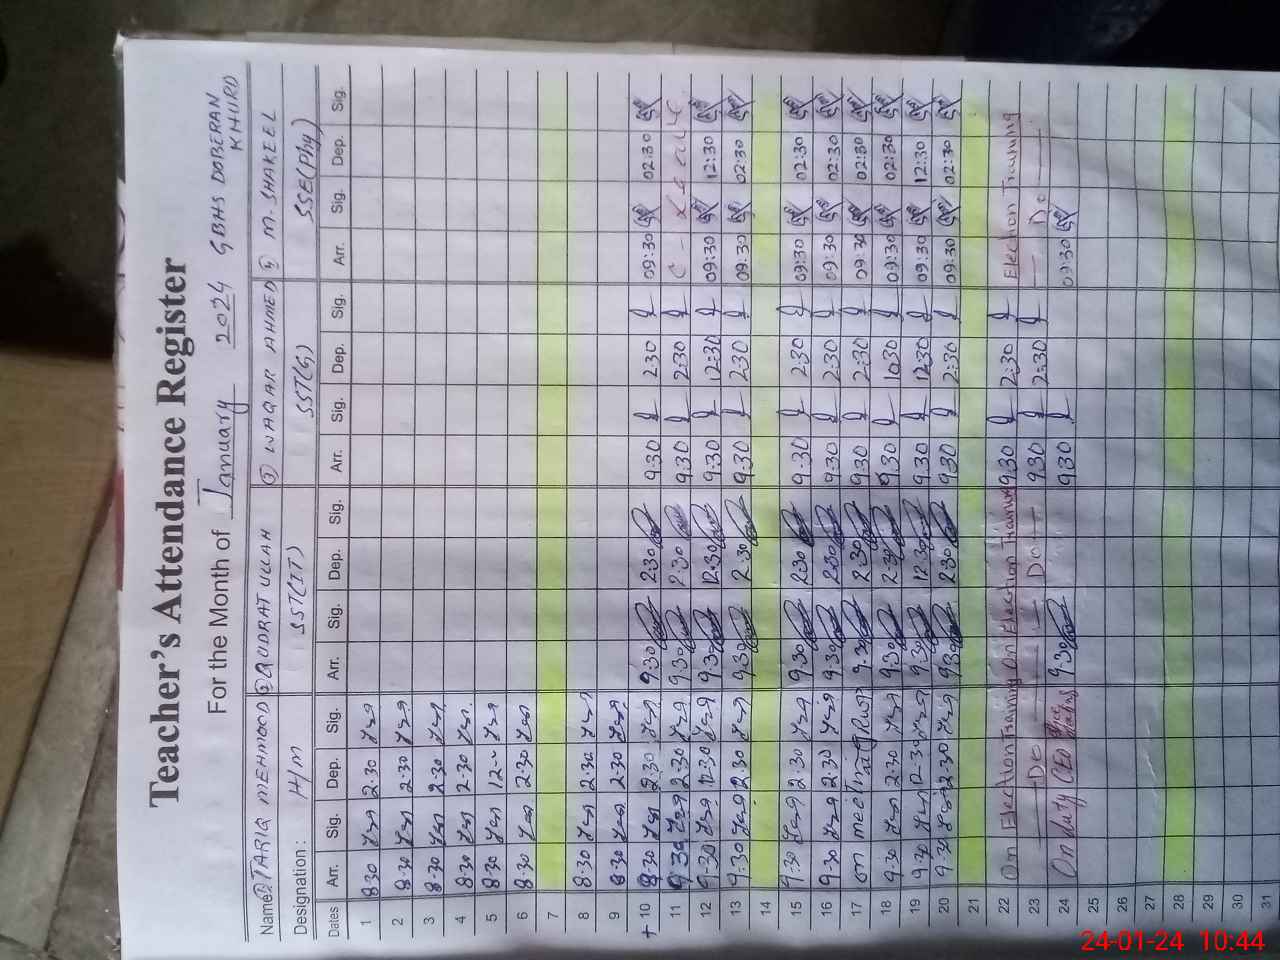 Teacher's Attendance Register
For the Month of January 2024 GBHS DOBERAN KHURD
Name: ① TARIQ MEHMOOD ② QUDRAT ULLAH ③ WAQAR AHMED ④ M. SHAKEEL
Designation: H/m SST(IT) SST(G) SSE(Phy)
Dates Arr. Sig. Dep. Sig. Arr. Sig. Dep. Sig. Arr. Sig. Dep. Sig. Arr. Sig. Dep. Sig.
1 8:30 2:30
2 8:30 2:30
3 8:30 2:30
4 8:30 2:30
5 8:30 12:00
6 8:30 2:30
7
8 8:30 2:30
9 8:30 2:30
+ 10 8:30 2:30 9:30 2:30 9:30 2:30 09:30 02:30
11 9:30 2:30 9:30 2:30 9:30 2:30 C - Leave
12 9:30 12:30 9:30 12:30 9:30 12:30 09:30 12:30
13 9:30 2:30 9:30 2:30 9:30 2:30 09:30 02:30
14
15 9:30 2:30 9:30 2:30 9:30 2:30 09:30 02:30
16 9:30 2:30 9:30 2:30 9:30 2:30 09:30 02:30
17 on meeting at 9:30 2:30 9:30 2:30 09:30 02:30
18 9:30 2:30 9:30 2:30 9:30 10:30 09:30 02:30
19 9:30 12:30 9:30 12:30 9:30 12:30 09:30 12:30
20 9:30 2:30 9:30 2:30 9:30 2:30 09:30 02:30
21
22 On Election Training On Election Training 9:30 2:30 Election Training
23 Do Do 9:30 2:30 Do
24 On duty CEO 9:30 9:30 09:30
25
26
27
28
29
30
31
24-01-24 10:44